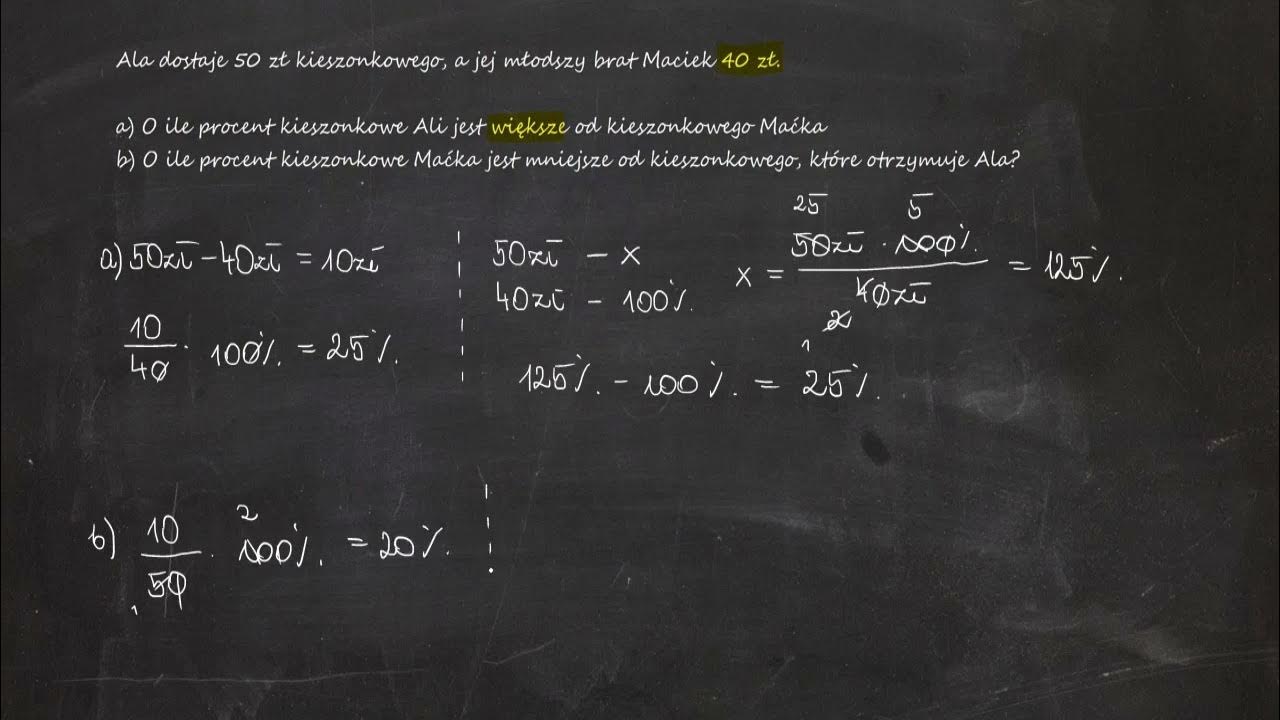 Ala dostaje 50 zł kieszonkowego, a jej młodszy brat Maciek 40 zł.
a) O ile procent kieszonkowe Ali jest większe od kieszonkowego Maćka
b) O ile procent kieszonkowe Maćka jest mniejsze od kieszonkowego, które otrzymuje Ala?
a) 50zł - 40zł = 10zł
10/40 · 100% = 25%.
50zł - x
40zł - 100%
25 5
x = 50zł · 100% / 40zł = 125%.
2
1
125% - 100% = 25%.
b) 10/50 · 100% = 20%.
2
1